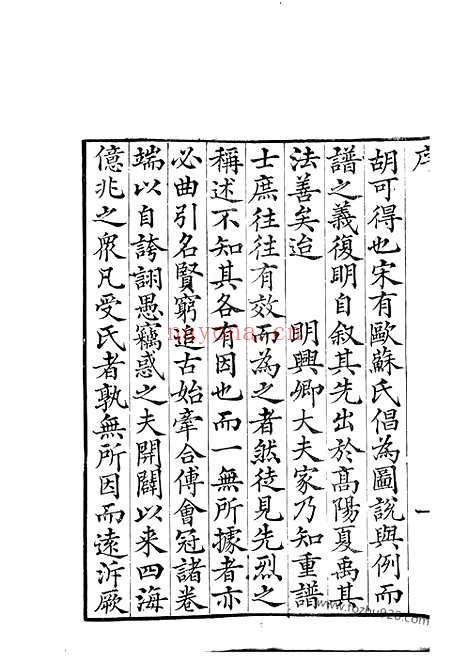 序
一
胡可得也宋有歐蘇氏倡為圖說與例而
譜之義復明自叙其先出於高陽夏禹其
法善矣迨　明興卿大夫家乃知重譜
士庶往往有效而為之者然徒見先烈之
稱述不知其各有因也而一無所據者亦
必曲引名賢窮追古始牽合傅會冠諸卷
端以自誇詡愚竊惑之夫開闢以来四海
億兆之衆凡受氏者孰無所因而遠泝厥
nayona.cn